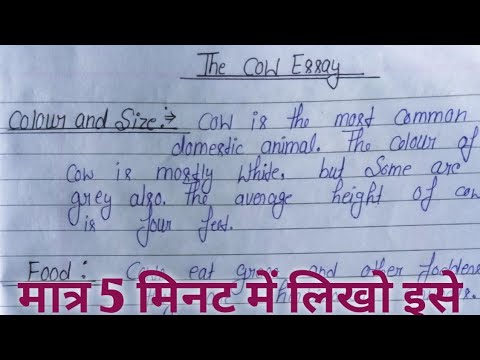 The Cow Essay
Colour and Size:→ Cow is the most common
domestic animal. The colour of
Cow is mostly white, but Some are
grey also. The average height of cow
is four feet.
Food: Cows eat grass and other fodders
मात्र 5 मिनट में लिखो इसे